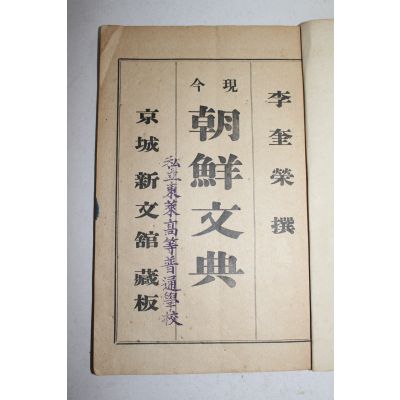 李奎榮撰
現今
朝鮮文典
私立東萊高等普通學校
京城新文館藏板